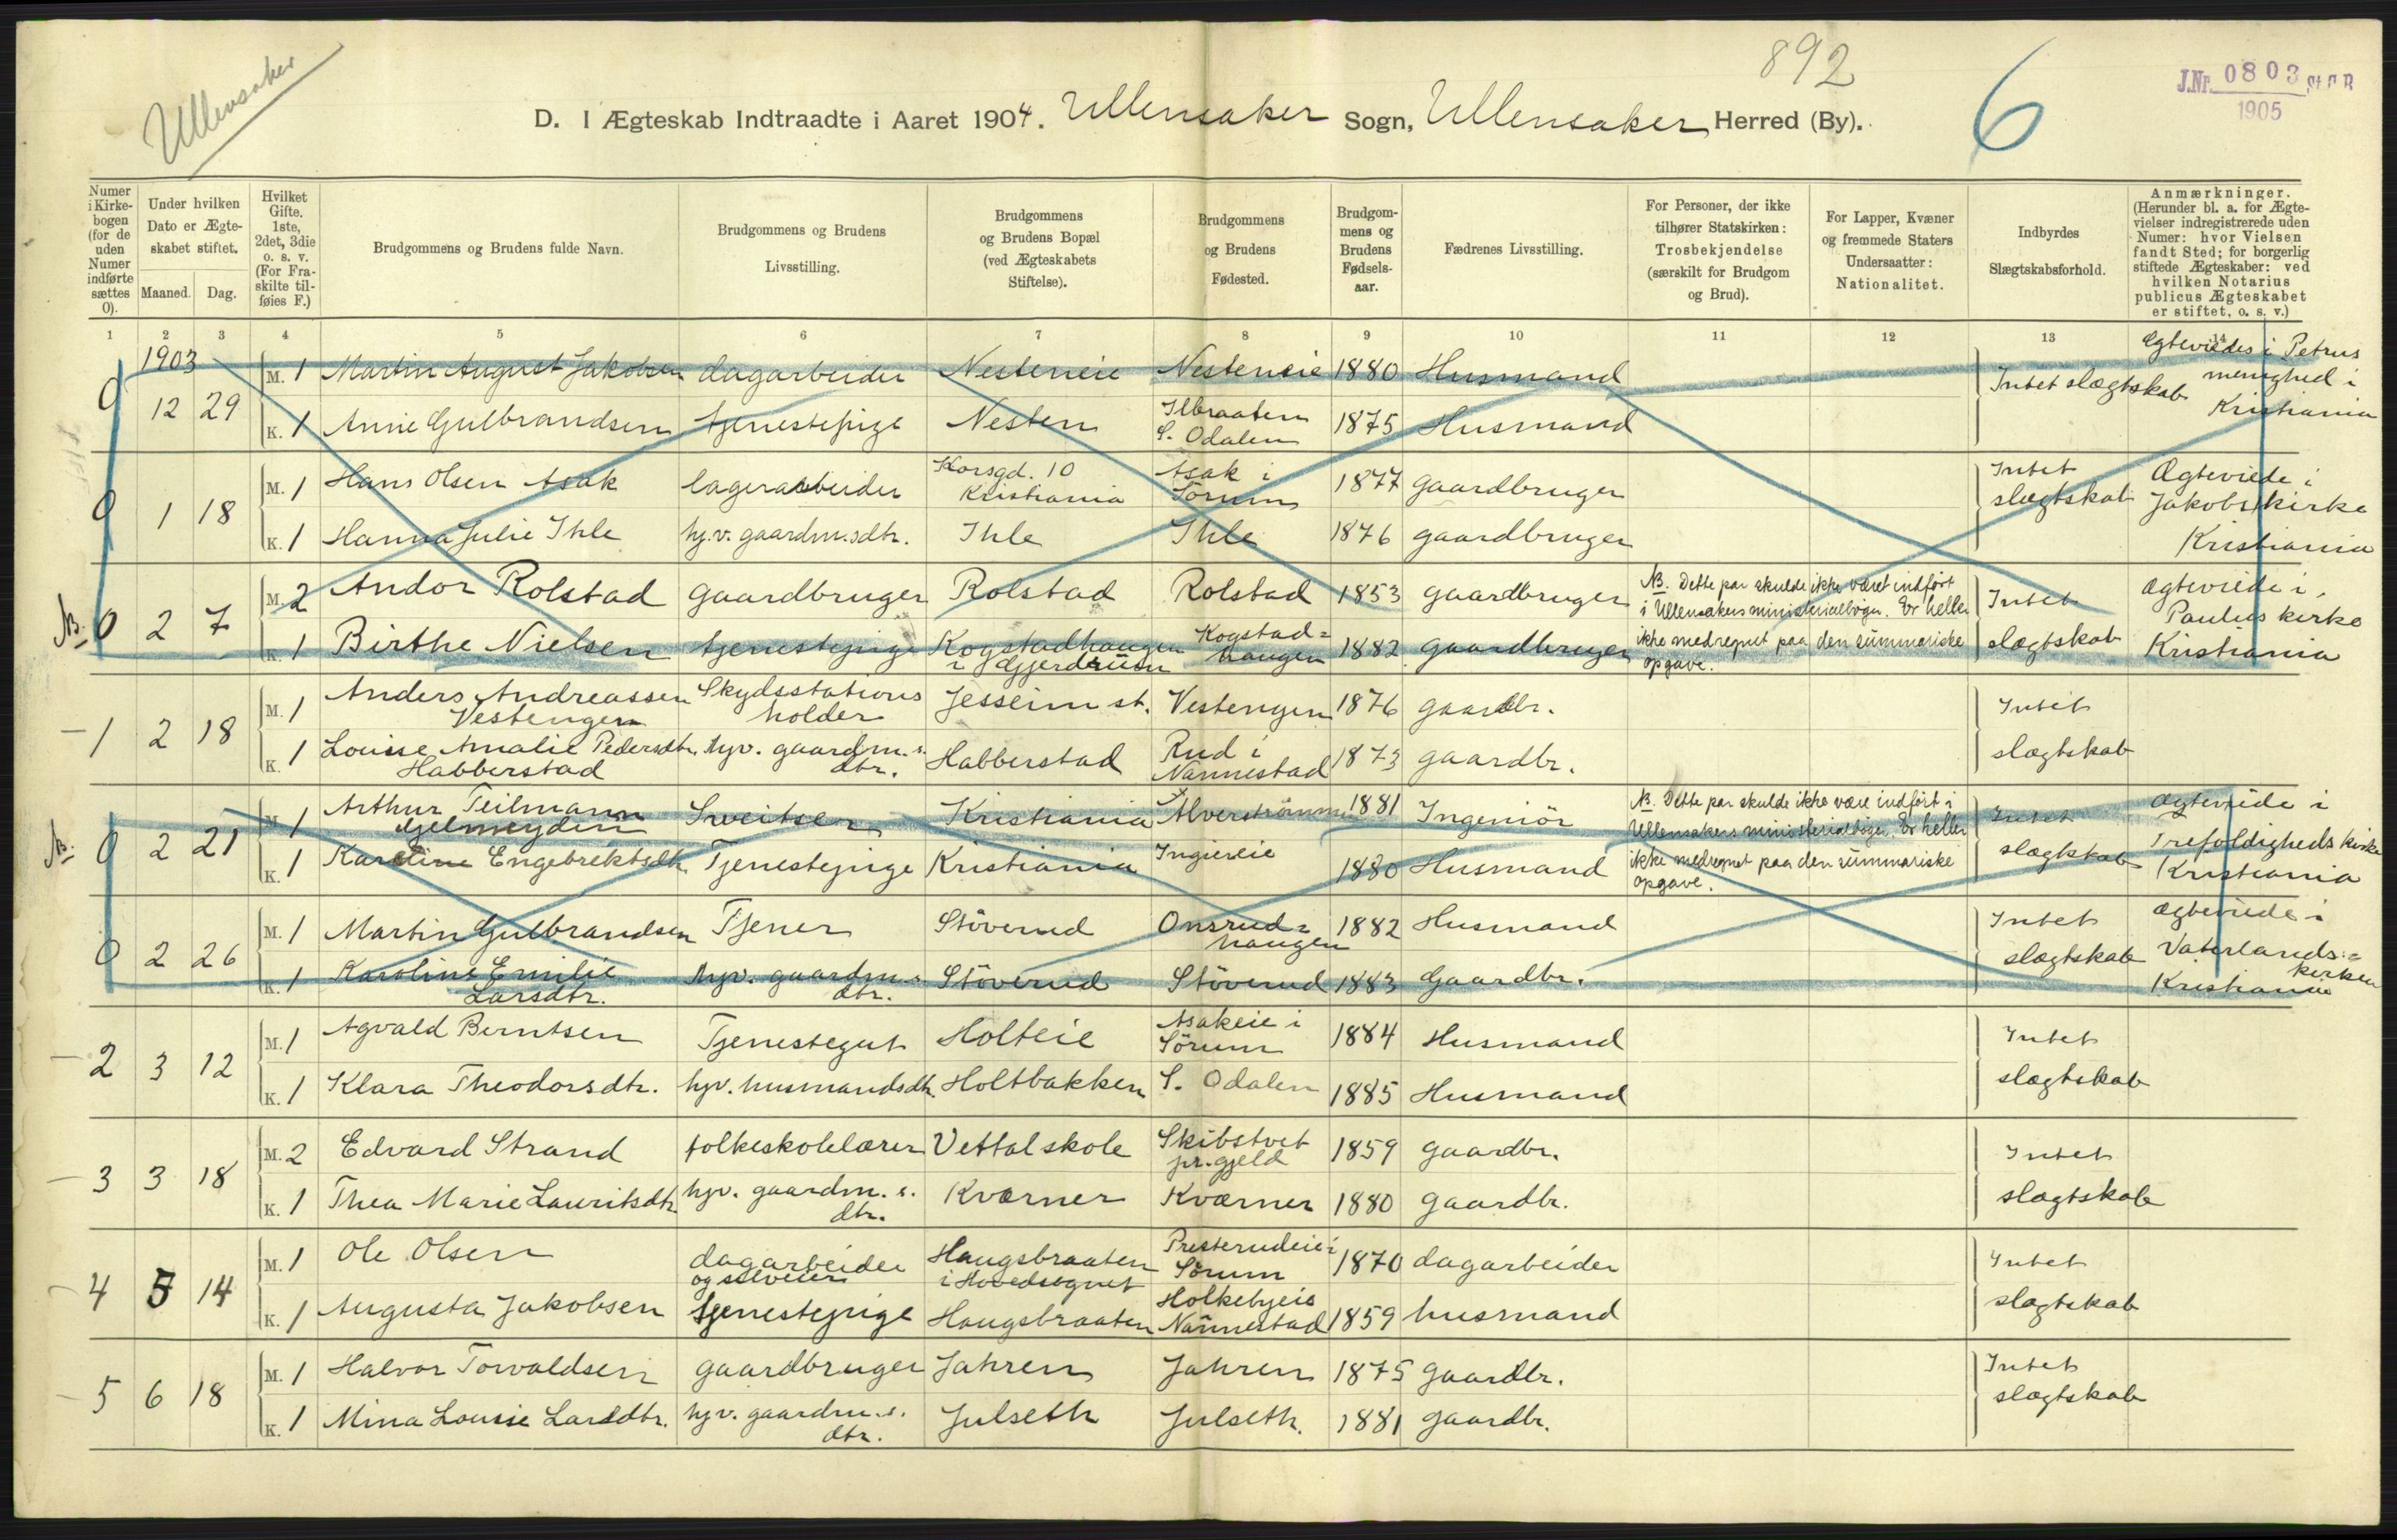 Ullensaker
892
6
J.Nr. 0803 St.C.B
1905
D. I Ægteskab Indtraadte i Aaret 1904. Ullensaker Sogn, Ullensaker Herred (By).
Numer i Kirkebogen (for de uden Numer indførte sættes 0).
Under hvilken Dato er Ægteskabet stiftet.
Maaned. Dag.
Hvilket Gifte. 1ste, 2det, 3die o. s. v. (For Fraskilte tilføies F.)
Brudgommens og Brudens fulde Navn.
Brudgommens og Brudens Livsstilling.
Brudgommens og Brudens Bopæl (ved Ægteskabets Stiftelse).
Brudgommens og Brudens Fødested.
Brudgommens og Brudens Fødselsaar.
Fædrenes Livsstilling.
For Personer, der ikke tilhører Statskirken: Trosbekjendelse (særskilt for Brudgom og Brud).
For Lapper, Kvæner og fremmede Staters Undersaatter: Nationalitet.
Indbyrdes Slægtskabsforhold.
Anmærkninger. (Herunder bl. a. for Ægtevielser indregistrerede uden Numer: hvor Vielsen fandt Sted; for borgerlig stiftede Ægteskaber: ved hvilken Notarius publicus Ægteskabet er stiftet, o. s. v.)
1 2 3 4 5 6 7 8 9 10 11 12 13 14
1903
0 12 29 M. 1 Martin August Jakobsen dagarbeider Nesteneie Nesteneie 1880 Husmand Intet slægtskab Ægteviedes i Petrus menighed i Kristiania
K. 1 Anne Gulbrandsen tjenestepige Nesten Ilbraaten S. Odalen 1875 Husmand
0 1 18 M. 1 Hans Olsen Asak lagerarbeider Korsgd. 10 Kristiania Asak i Sørum 1877 gaardbruger Intet slægtskab Ægteviede i Jakobs kirke Kristiania
K. 1 Hanna Julie Ihle hj.v. gaardm.sdtr. Ihle Ihle 1876 gaardbruger
NB. 0 2 7 M. 2 Andor Rolstad gaardbruger Rolstad Rolstad 1853 gaardbruger NB. Dette par skulde ikke været indført i Ullensakers ministerialbøger. Er heller ikke medregnet paa den summariske opgave. Intet slægtskab Ægteviede i Paulus kirke Kristiania
K. 1 Birthe Nielsen tjenestepige Kogstadhaugen i Gjerdrum Kogstadhaugen 1882 gaardbruger
1 2 18 M. 1 Anders Andreassen Vestengen Skydsstationsholder Jesseim st. Vestengen 1876 gaardbr. Intet slægtskab
K. 1 Louise Amalie Pedersdtr. Habberstad hjv. gaardm.s.dtr. Habberstad Rud i Nannestad 1873 gaardbr.
NB. 0 2 21 M. 1 Arthur Teilmann Gjelmeyden Sveitser Kristiania Alverstrømm 1881 Ingeniør NB. Dette par skulde ikke være indført i Ullensakers ministerialbøger. Er heller ikke medregnet paa den summariske opgave. Intet slægtskab Ægteviede i Trefoldigheds kirke Kristiania
K. 1 Karoline Engebrektsdtr. Tjenestepige Kristiania Ingiereie 1880 Husmand
0 2 26 M. 1 Martin Gulbrandsen Tjener Støverud Onsrudhaugen 1882 Husmand Intet slægtskab Ægteviede i Vaterlandskirken Kristiania
K. 1 Karoline Emilie Larsdtr. hjv. gaardm.s.dtr. Støverud Støverud 1883 Gaardbr.
2 3 12 M. 1 Agvald Berntsen Tjenestegut Holteie Asakeie i Sørum 1884 Husmand Intet slægtskab
K. 1 Klara Theodorsdtr. hjv. husmandsdtr. Holtbakken S. Odalen 1885 Husmand
3 3 18 M. 2 Edvard Strand folkeskolelærer Vettal skole Skibstvet pr.gjeld 1859 gaardbr. Intet slægtskab
K. 1 Thea Marie Lauritsdtr. hjv. gaardm.s.dtr. Kværner Kværner 1880 gaardbr.
4 5 14 M. 1 Ole Olsen dagarbeider og selveier Haugsbraaten i Hovedsognet Presterudeie i Sørum 1870 dagarbeider Intet slægtskab
K. 1 Augusta Jakobsen tjenestepige Haugsbraaten Holkebyeie Nannestad 1859 husmand
5 6 18 M. 1 Halvor Torvaldsen gaardbruger Jahren Jahren 1875 gaardbr. Intet slægtskab
K. 1 Mina Louise Larsdtr. hjv. gaardm.s.dtr. Julseth Julseth. 1881 gaardbr.